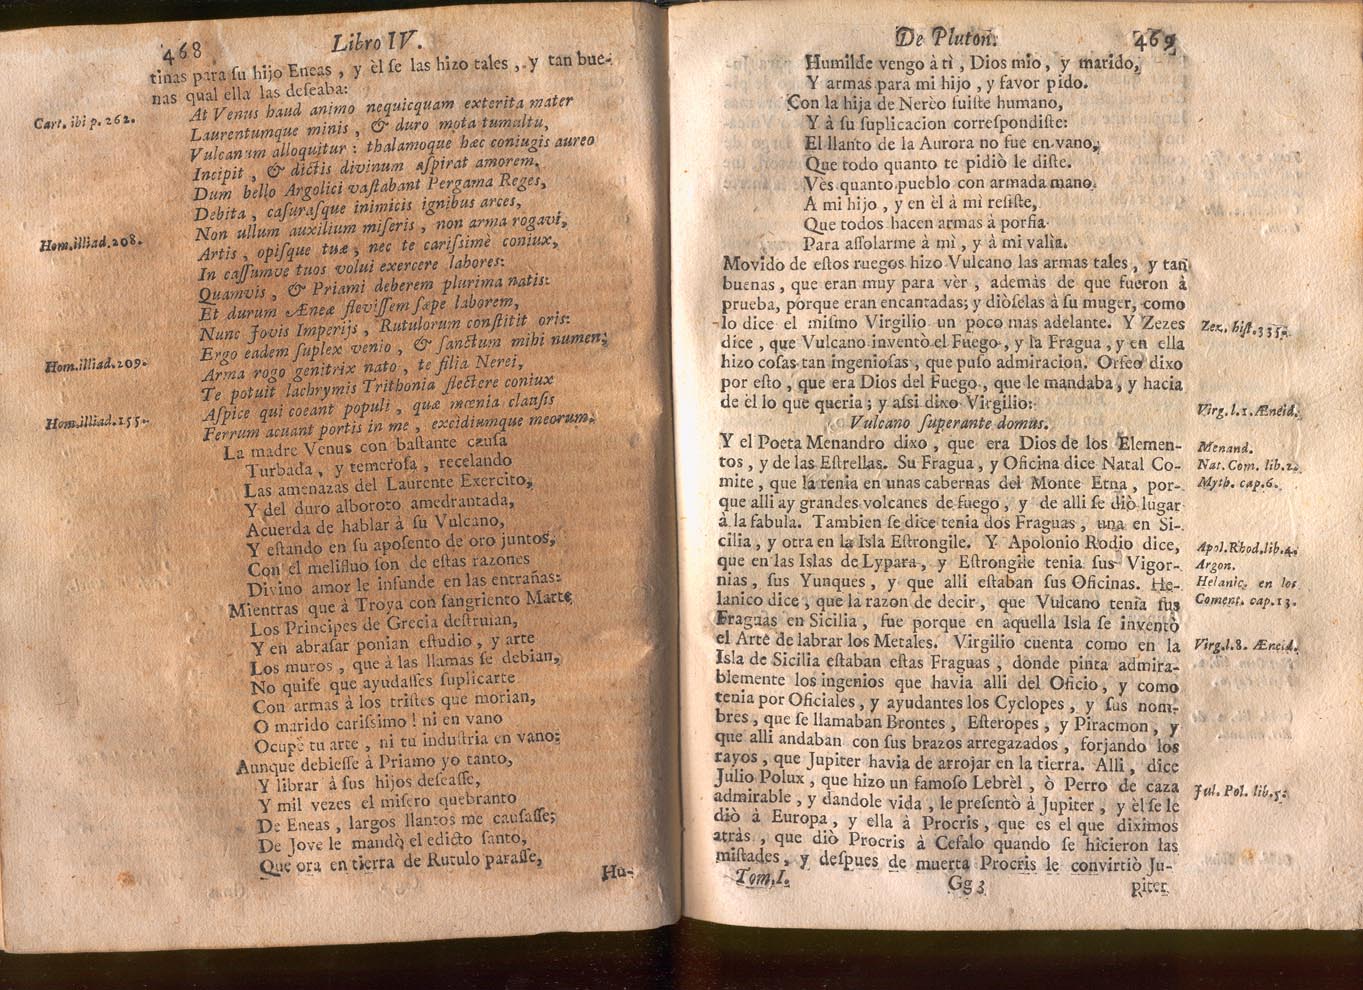 468
Libro IV.
tinas para ſu hijo Eneas, y èl ſe las hizo tales, y tan bue-
nas qual ella las deſeaba:
Cart. ibi p. 262.
At Venus haud animo nequicquam exterita mater
Laurentumque minis, & duro mota tumultu,
Vulcanum alloquitur: thalamoque hæc coniugis aureo
Incipit, & dictis divinum aſpirat amorem.
Dum bello Argolici vaſtabant Pergama Reges,
Debita, caſuraſque inimicis ignibus arces,
Non ullum auxilium miſeris, non arma rogavi,
Hom. illiad. 208.
Artis, opiſque tuæ, nec te cariſsimè coniux,
In caſſumve tuos volui exercere labores:
Quamvis, & Priami deberem plurima natis:
Et durum Æneæ fleviſſem ſæpe laborem,
Nunc Jovis Imperijs, Rutulorum conſtitit oris:
Ergo eadem ſuplex venio, & ſanctum mihi numen;
Hom. illiad. 209.
Arma rogo genitrix nato, te filia Nerei,
Te potuit lachrymis Trithonia flectere coniux
Aſpice qui coeant populi, quæ mœnia clauſis
Hom. illiad. 155.
Ferrum acuant portis in me, excidiumque meorum.
La madre Venus con baſtante cauſa
Turbada, y temeroſa, recelando
Las amenazas del Laurente Exercito,
Y del duro alboroto amedrantada,
Acuerda de hablar à ſu Vulcano,
Y eſtando en ſu apoſento de oro juntos,
Con el melifluo ſon de eſtas razones
Divino amor le infunde en las entrañas:
Mientras que à Troya con ſangriento Marte
Los Principes de Grecia deſtruian,
Y en abraſar ponian eſtudio, y arte
Los muros, que à las llamas ſe debian,
No quiſe que ayudaſſes ſuplicarte
Con armas à los triſtes que morian,
O marido cariſsimo! ni en vano
Ocupè tu arte, ni tu induſtria en vano:
Aunque debieſſe à Priamo yo tanto,
Y librar à ſus hijos deſeaſſe,
Y mil vezes el miſero quebranto
De Eneas, largos llantos me cauſaſſe;
De Jove le mandò el edicto ſanto,
Que ora en tierra de Rutulo paraſſe,
Hu-
De Pluton.
469
Humilde vengo à tì, Dios mio, y marido,
Y armas para mi hijo, y favor pido.
Con la hija de Nerèo fuiſte humano,
Y à ſu ſuplicacion correſpondiſte:
El llanto de la Aurora no fue en vano,
Que todo quanto te pidiò le diſte.
Vès quanto pueblo con armada mano
A mi hijo, y en èl à mi reſiſte,
Que todos hacen armas à porfia
Para aſſolarme à mì, y à mi valìa.
Movido de eſtos ruegos hizo Vulcano las armas tales, y tan
buenas, que eran muy para vèr, ademàs de que fueron à
prueba, porque eran encantadas; y diòſelas à ſu muger, como
lo dice el miſmo Virgilio un poco mas adelante. Y Zezes
Zez. hiſt. 335.
dice, que Vulcano inventò el Fuego, y la Fragua, y en ella
hizo coſas tan ingenioſas, que puſo admiracion. Orfeo dixo
por eſto, que era Dios del Fuego, que le mandaba, y hacia
de èl lo que queria; y aſsi dixo Virgilio:
Virg. l. 1. Æneid.
Vulcano ſuperante domus.
Y el Poeta Menandro dixo, que era Dios de los Elemen-
Menand.
tos, y de las Eſtrellas. Su Fragua, y Oficina dice Natal Co-
Nat. Com. lib. 2.
mite, que la tenia en unas cabernas del Monte Etna, por-
Myth. cap. 6.
que alli ay grandes volcanes de fuego, y de alli ſe diò lugar
à la fabula. Tambien ſe dice tenia dos Fraguas, una en Si-
cilia, y otra en la Isla Eſtrongile. Y Apolonio Rodio dice,
Apol. Rhod. lib. 4.
que en las Islas de Lypara, y Eſtrongile tenia ſus Vigor-
Argon.
nias, ſus Yunques, y que alli eſtaban ſus Oficinas. He-
Helanic. en los
lanico dice, que la razon de decir, que Vulcano tenia ſus
Coment. cap. 13.
Fraguas en Sicilia, fue porque en aquella Isla ſe inventò
el Arte de labrar los Metales. Virgilio cuenta como en la
Virg. l. 8. Æneid.
Isla de Sicilia eſtaban eſtas Fraguas, donde pinta admira-
blemente los ingenios que havia alli del Oficio, y como
tenia por Oficiales, y ayudantes los Cyclopes, y ſus nom-
bres, que ſe llamaban Brontes, Eſteropes, y Piracmon, y
que alli andaban con ſus brazos arregazados, forjando los
rayos, que Jupiter havia de arrojar en la tierra. Alli, dice
Julio Polux, que hizo un famoſo Lebrèl, ò Perro de caza
Jul. Pol. lib. 5.
admirable, y dandole vida, le preſentò à Jupiter, y èl ſe le
diò à Europa, y ella à Procris, que es el que diximos
atràs, que diò Procris à Cefalo quando ſe hicieron las
miſtades, y deſpues de muerta Procris le convirtiò Ju-
Tom. I.
Gg 3
piter